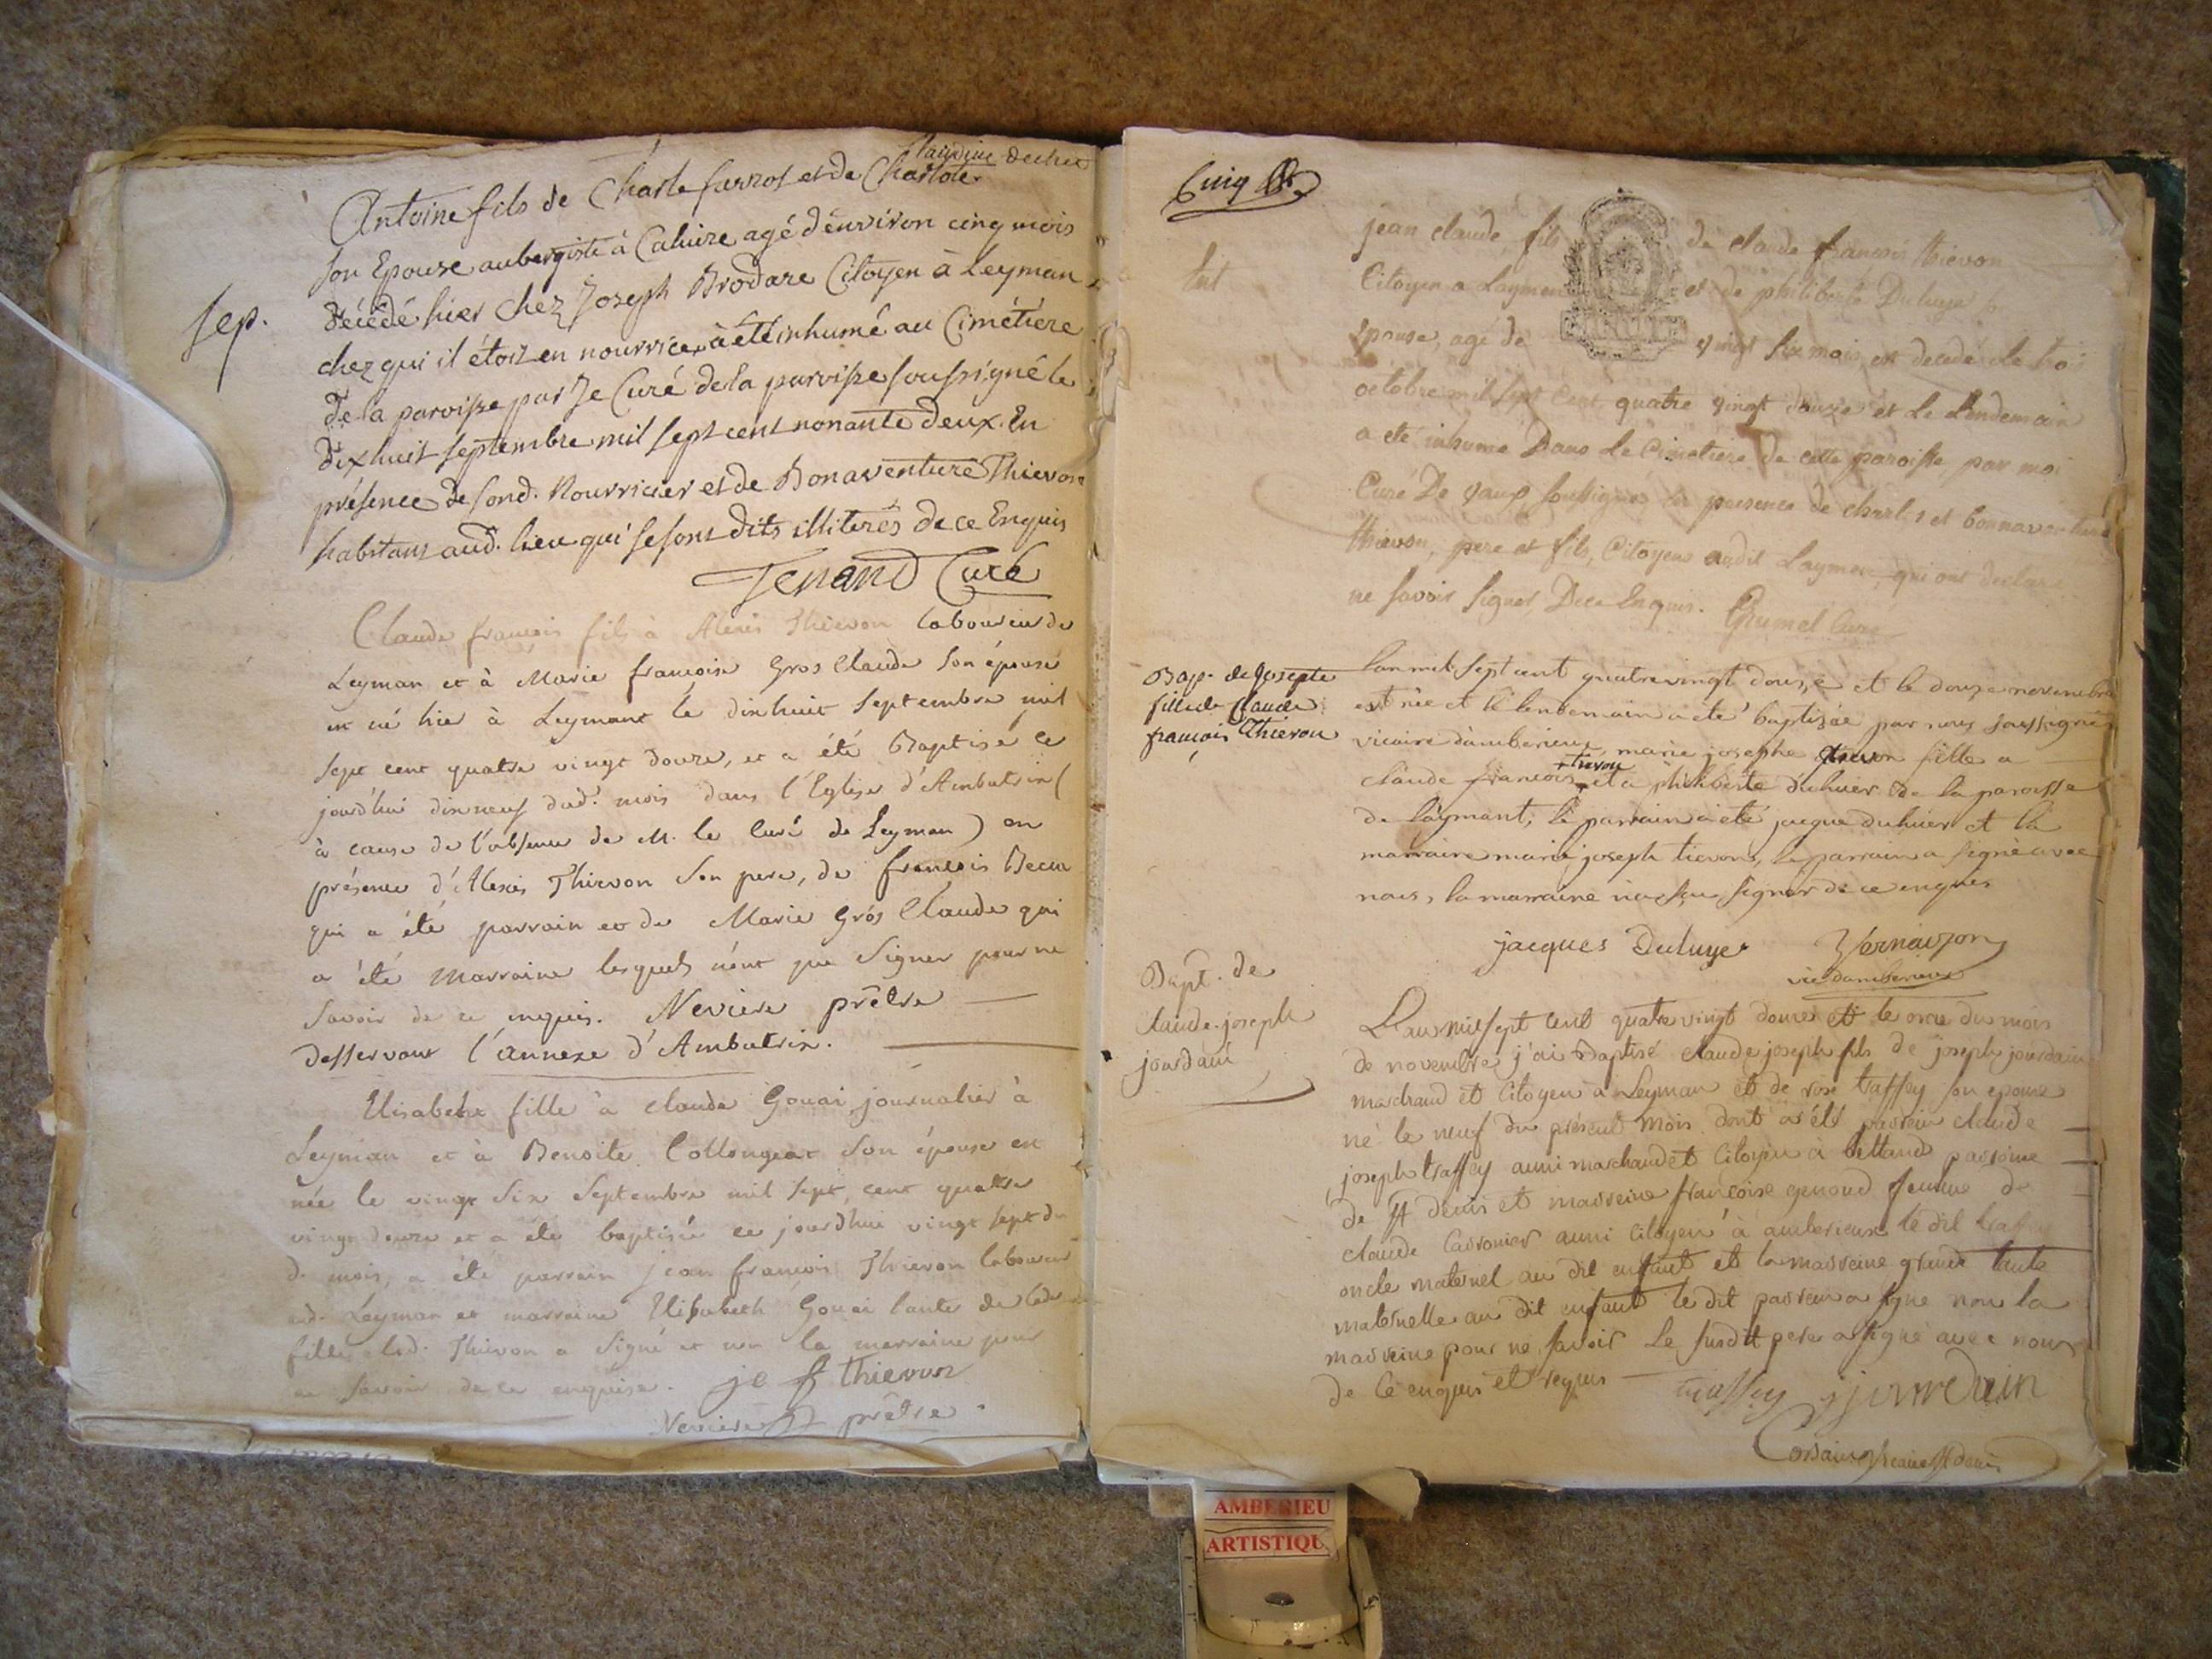 Claudine Duchet
Antoine fils de Charle farrot et de Charlote
son Epouse aubergiste à Caluire agé d'environ cinq mois
sep.
décédé hier chez Joseph Brodare Citoyen à Leyman
chez qui il étoit en nourrice, a été inhumé au Cimétière
de la paroisse par Je Curé de la paroisse soussigné le
dix huit septembre mil sept cent nonante deux. En
présence de sond. Nourricier et de Bonaventure Thievon
habitans aud. lieu qui se sont dits illiterés de ce Enquis
Tenand Curé
Claude françois fils à Alexis Thievon laboureur de
Leyman et à Marie françoise Gros Claude son épouse
est né hier à Leymant le dixhuit septembre mil
sept cent quatre vingt douze, et a été Baptisé ce
jourd'hui dix neuf dud. mois dans l'Eglise d'Ambutrix (
à cause de l'absence de M. le Curé de Leyman ) en
présence d'Alexis Thievon son pere, de françois
qui a été parrain et de Marie Gros Claude qui
a été marraine lesquels n'ont pu signer pour ne
savoir de ce enquis. Neviere prêtre
desservant l'annexe d'Ambutrix.
Elisabeth fille à claude Gouai journalier à
Leyman et à Benoite Collongeat son épouse est
née le vingt six septembre mil sept cent quatre
vingt douze et a été baptisée ce jourdhui vingt sept du
d. mois, a été parrain jean françois Thievon laboureur
aud. Leyman et marraine Elisabeth Gouai tante de lade
fille, led. Thievon a signé et non la marraine pour
ne savoir de ce enquise. je f thievon
Neviere prêtre
Cinq
jean claude, fils de claude françois thievon
Citoyen a Laymen et de philiberte Duhuye
Ent
Epouse, agé de vingt six mois, est decedé le troi
octobre mil sept cent quatre vingt douze et le lendemain
a été inhumé Dans le Cimetiere de cette paroisse, par moi
Curé De vaux soussigné en presence de charles et bonnaventure
thievon, pere et fils, Citoyens audit Laymen, qui ont declaré
ne savoir signer, De ce Enquis. Grumel Curé
Bap. de Josepte
fille de Claude
françois Thievon
lan mil sept cent quatre vingt douze et le douze novembre
est née et le lendemain a été baptisée par nous soussigné
vicaire d'amberieux, marie josephe fille a
tievon
claude francois et a philiberte duhuier de la paroisse
de laymant, le parrain a été jacque duhuier et la
marraine marie joseph tievon, le parrain a signé avec
nous, la marraine n'a su signer de ce enquis
jacques Duhuye Vernaujon
vic d'amberieux
Bapt. de
claude-joseph
jourdain
L'an mil sept cent quatre vingt douze et le onze du mois
de novembre j'ai Baptisé claude joseph fils de joseph jourdain
marchand et citoyen à Leyman et de rose traffey son epouse
né le neuf du présent mois. dont a été parrein claude
joseph traffey aussi marchand et citoyen à bettand paroisse
de St denis et marreine françoise genoud femme de
claude Carronier aussi citoyen à amberieux le dit traffey
oncle maternel au dit enfant et la marreine grande tante
maternelle au dit enfant le dit parrein a signé non la
marreine pour ne savoir Le susdit pere a signé avec nous
de ce enquis et requis traffey j jourdain
vicaire St denis
AMBERIEU
ARTISTIQU